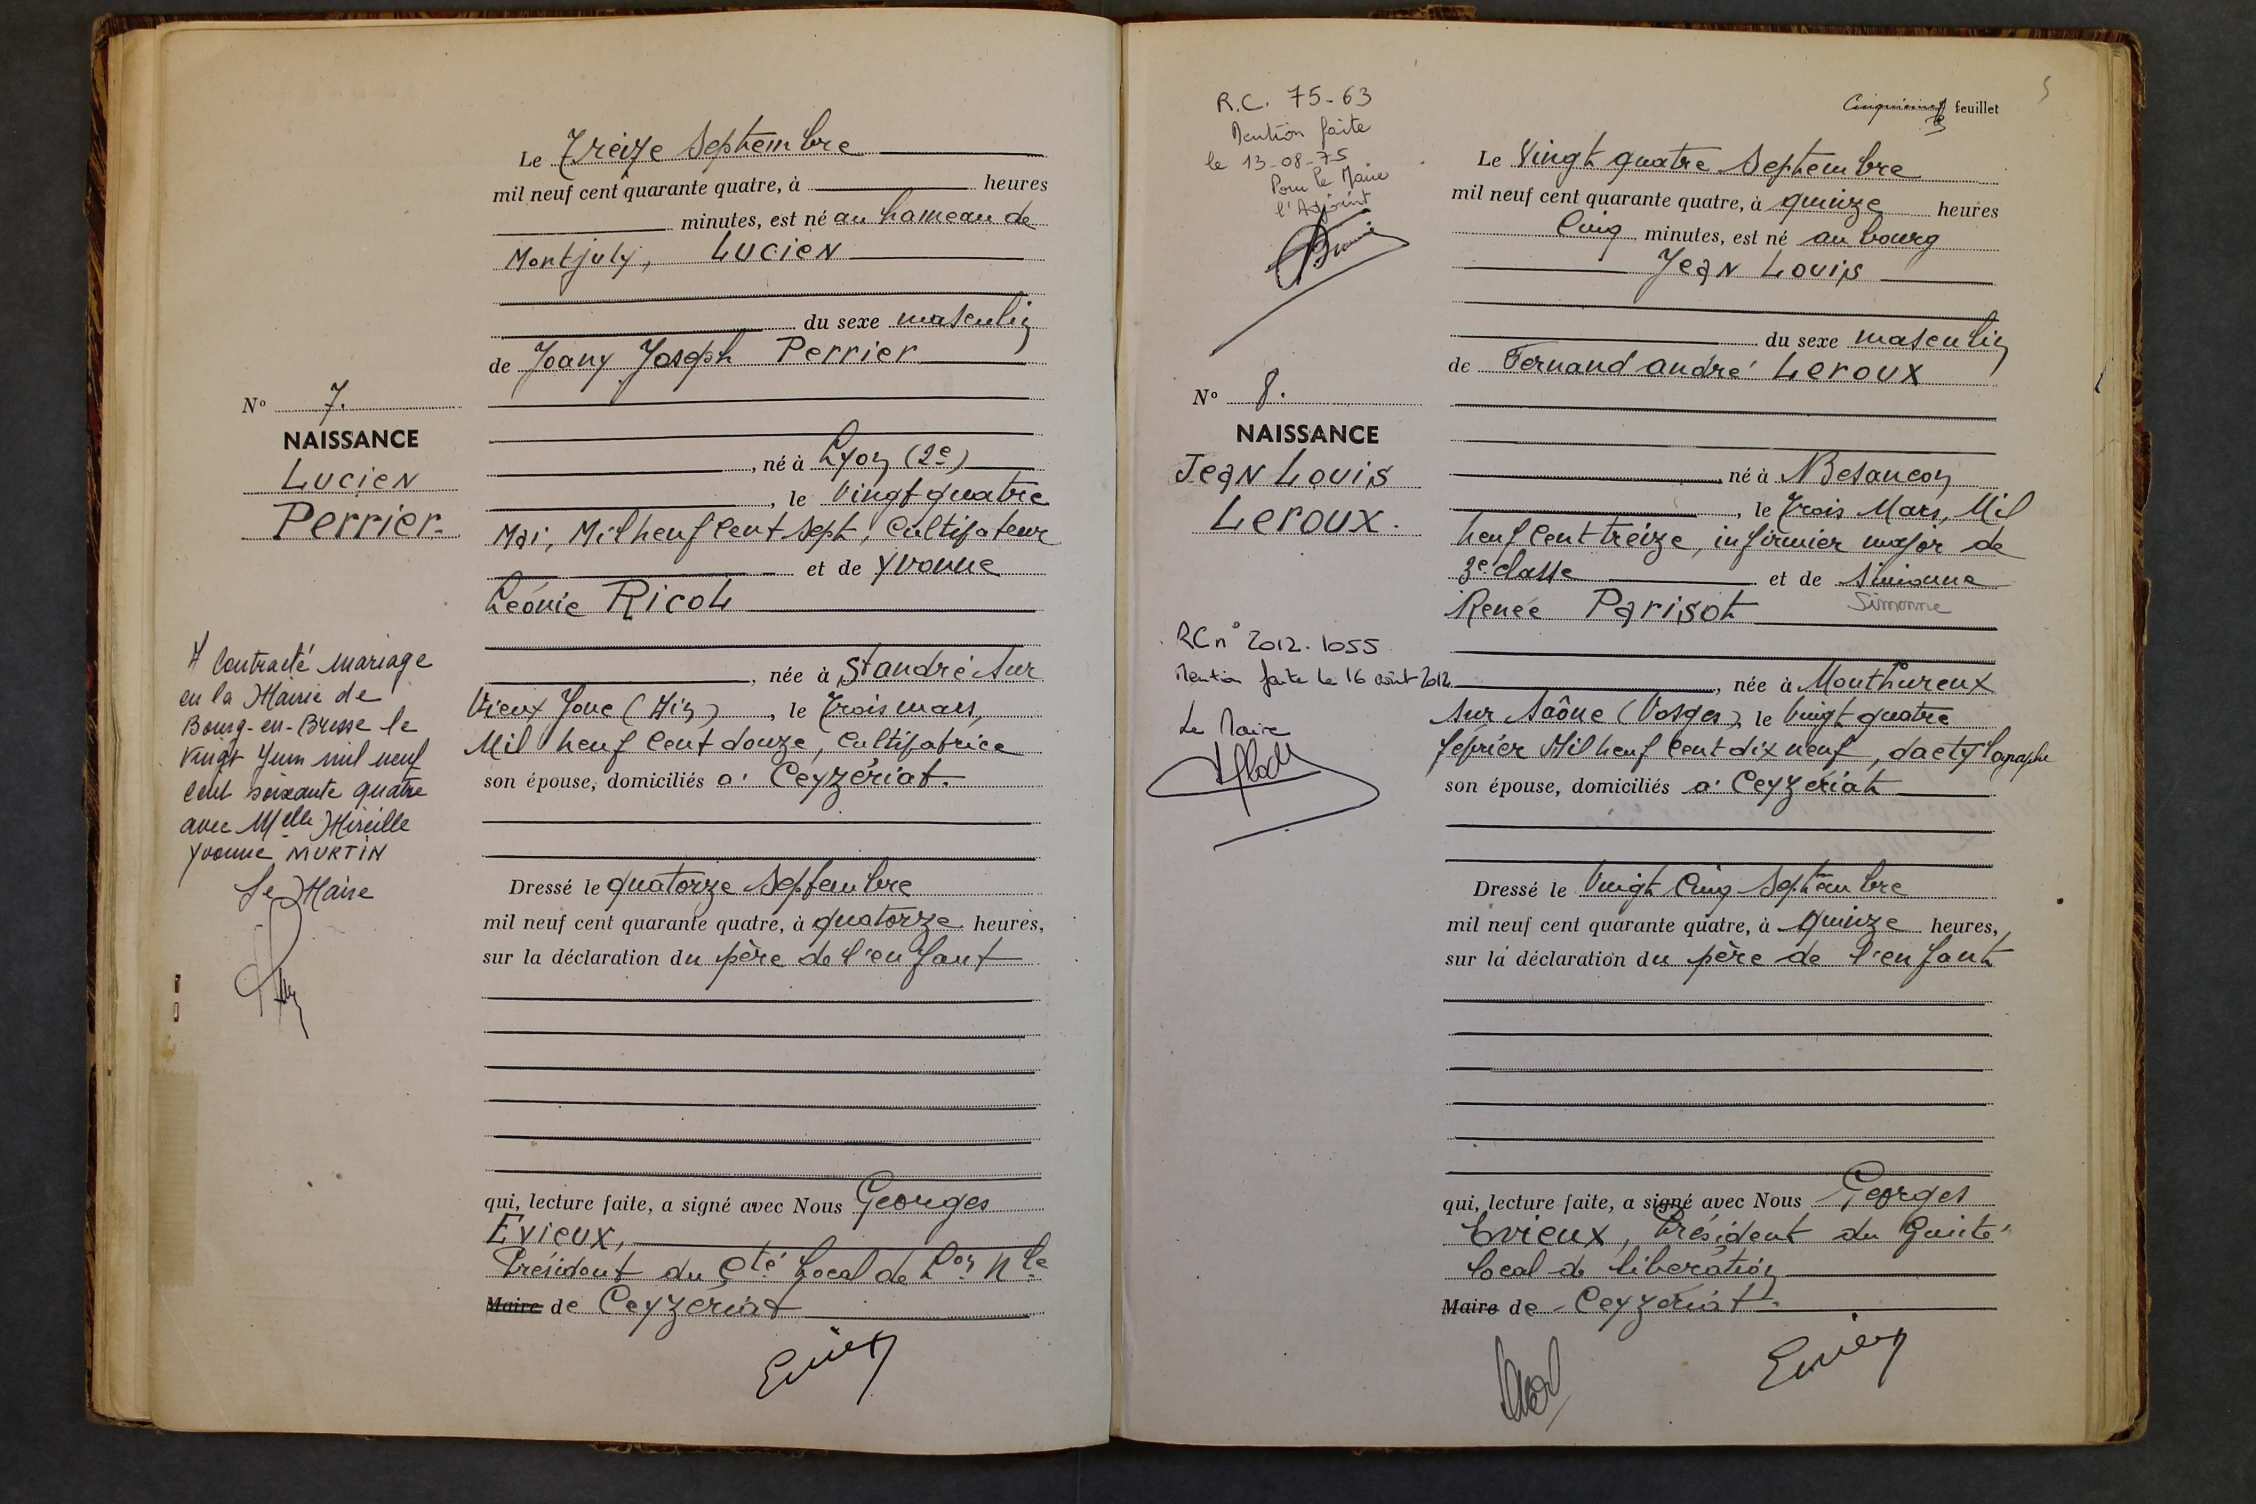 Le Treize Septembre
mil neuf cent quarante quatre, à heures
minutes, est né au hameau de
Montjuly, Lucien
du sexe masculin
de Joany Joseph Perrier
No 7.
NAISSANCE
Lucien
Perrier.
, né à Lyon (2e)
, le Vingt quatre
Mai, Mil neuf cent sept, Cultivateur
et de Yvonne
Léonie Ricol
, née à St andré sur
Vieux Jonc (Ain) , le Trois mars,
Mil neuf cent douze, Cultivatrice
son épouse, domiciliés à Ceyzériat.
A Contracté mariage
en la Mairie de
Bourg-en-Bresse le
Vingt Juin mil neuf
cent soixante quatre
avec Melle Mireille
Yvonne MURTIN
Le Maire
Dressé le quatorze Septembre
mil neuf cent quarante quatre, à quatorze heures,
sur la déclaration du père de l'enfant
qui, lecture faite, a signé avec Nous Georges
Evieux,
Président du Cté Local de Lon Nle
Maire de Ceyzériat
Cinquième feuillet
5
R.C. 75-63
Mention faite
le 13-08-75
Pour le Maire
l'Adjoint
Le Vingt quatre Septembre
mil neuf cent quarante quatre, à quinze heures
Cinq minutes, est né au bourg
Jean Louis
du sexe masculin
de Fernand andré Leroux
No 8.
NAISSANCE
Jean Louis
Leroux.
né à Besancon
, le Trois Mars, Mil
neuf cent treize, infirmier major de
3e classe et de Simonne
Simonne
Renée Parisot
, née à Monthureux
sur Saône (Vosges), le Vingt quatre
février Mil neuf cent dix neuf, dactylographe
son épouse, domiciliés à Ceyzériat
RC n° 2012.1055
Mention faite le 16 août 2012
Le Maire
Dressé le Vingt Cinq Septembre
mil neuf cent quarante quatre, à quinze heures,
sur la déclaration du père de l'enfant
qui, lecture faite, a signé avec Nous Georges
Evieux, Président du Comité
local de libération
Maire de Ceyzériat.